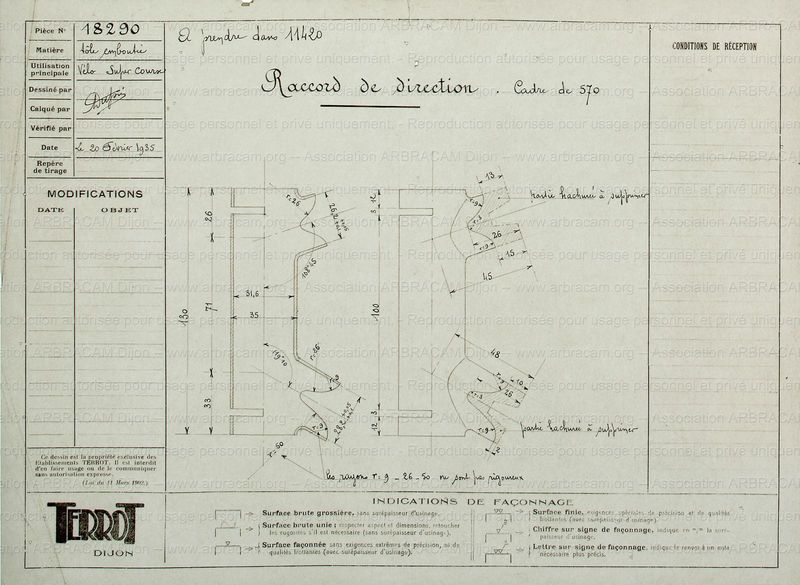 Pièce N° 18290
Matière tôle emboutie
Utilisation principale Vélo Super Course
Dessiné par
Calqué par
Vérifié par
Date Le 20 Février 1935
Repère de tirage
MODIFICATIONS
DATE OBJET
A prendre dans 11420
Raccord de direction . Cadre de 570
CONDITIONS DE RÉCEPTION
13
partie hachurée à supprimer
r=26
26
12
3
r.9
r.3
26
15
r.9
45
108°45
31,6
35
130
71
100
119°10
r=26
48
10
26
r.9
r.3
33
3
12
r.9
partie hachurée à supprimer
r=50
les rayons r=9 _ 26 _ 50 ne sont pas rigoureux
Ce dessin est la propriété exclusive des
Etablissements TERROT. Il est interdit
d'en faire usage ou de le communiquer
sans autorisation expresse.
(Loi du 11 Mars 1902.)
TERROT
DIJON
INDICATIONS DE FAÇONNAGE
Surface brute grossière, sans surépaisseur d'usinage.
Surface brute unie; respecter aspect et dimensions, retoucher
les rugosités s'il est nécessaire (sans surépaisseur d'usinage).
Surface façonnée sans exigences extrêmes de précision, ni de
qualités frottantes (avec surépaisseur d'usinage).
Surface finie, exigences spéciales de précision et de qualités
frottantes (avec surépaisseur d'usinage).
Chiffre sur signe de façonnage, indique en m/m la suré-
paisseur d'usinage.
Lettre sur signe de façonnage, indique le renvoi à un note
nécessaire plus précis.
www.arbracam.org – Association ARBRACAM Dijon – www.arbracam.org – Association ARBRACAM Dijon
Reproduction autorisée pour usage personnel et privé uniquement.